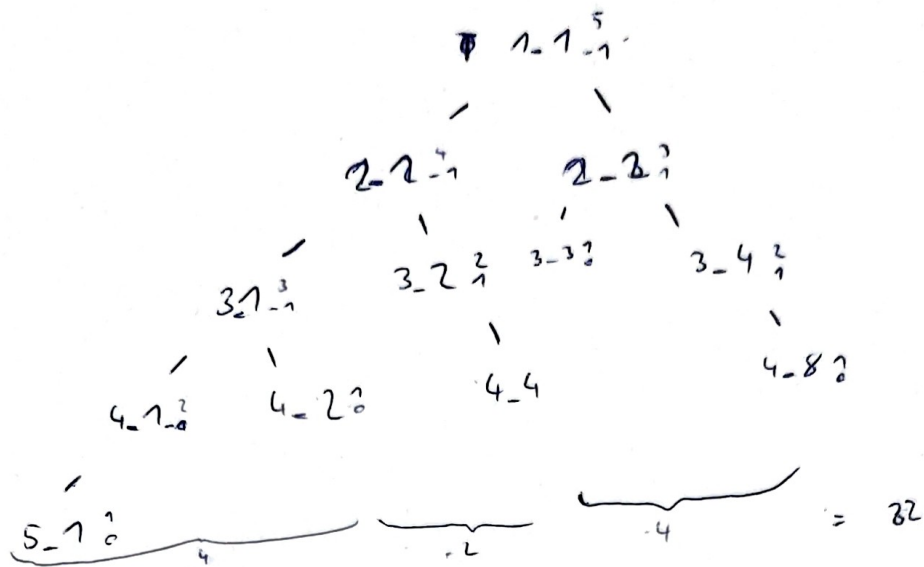 1_1_1 5
2_1_1 4 2_2 3 1
3_1_1 3 3_2 2 1 3_3 1 0 3_4 2 1
4_1_0 2 4_2 1 0 4_4 4_8 1 0
5_1 1 0
4 2 4 = 32